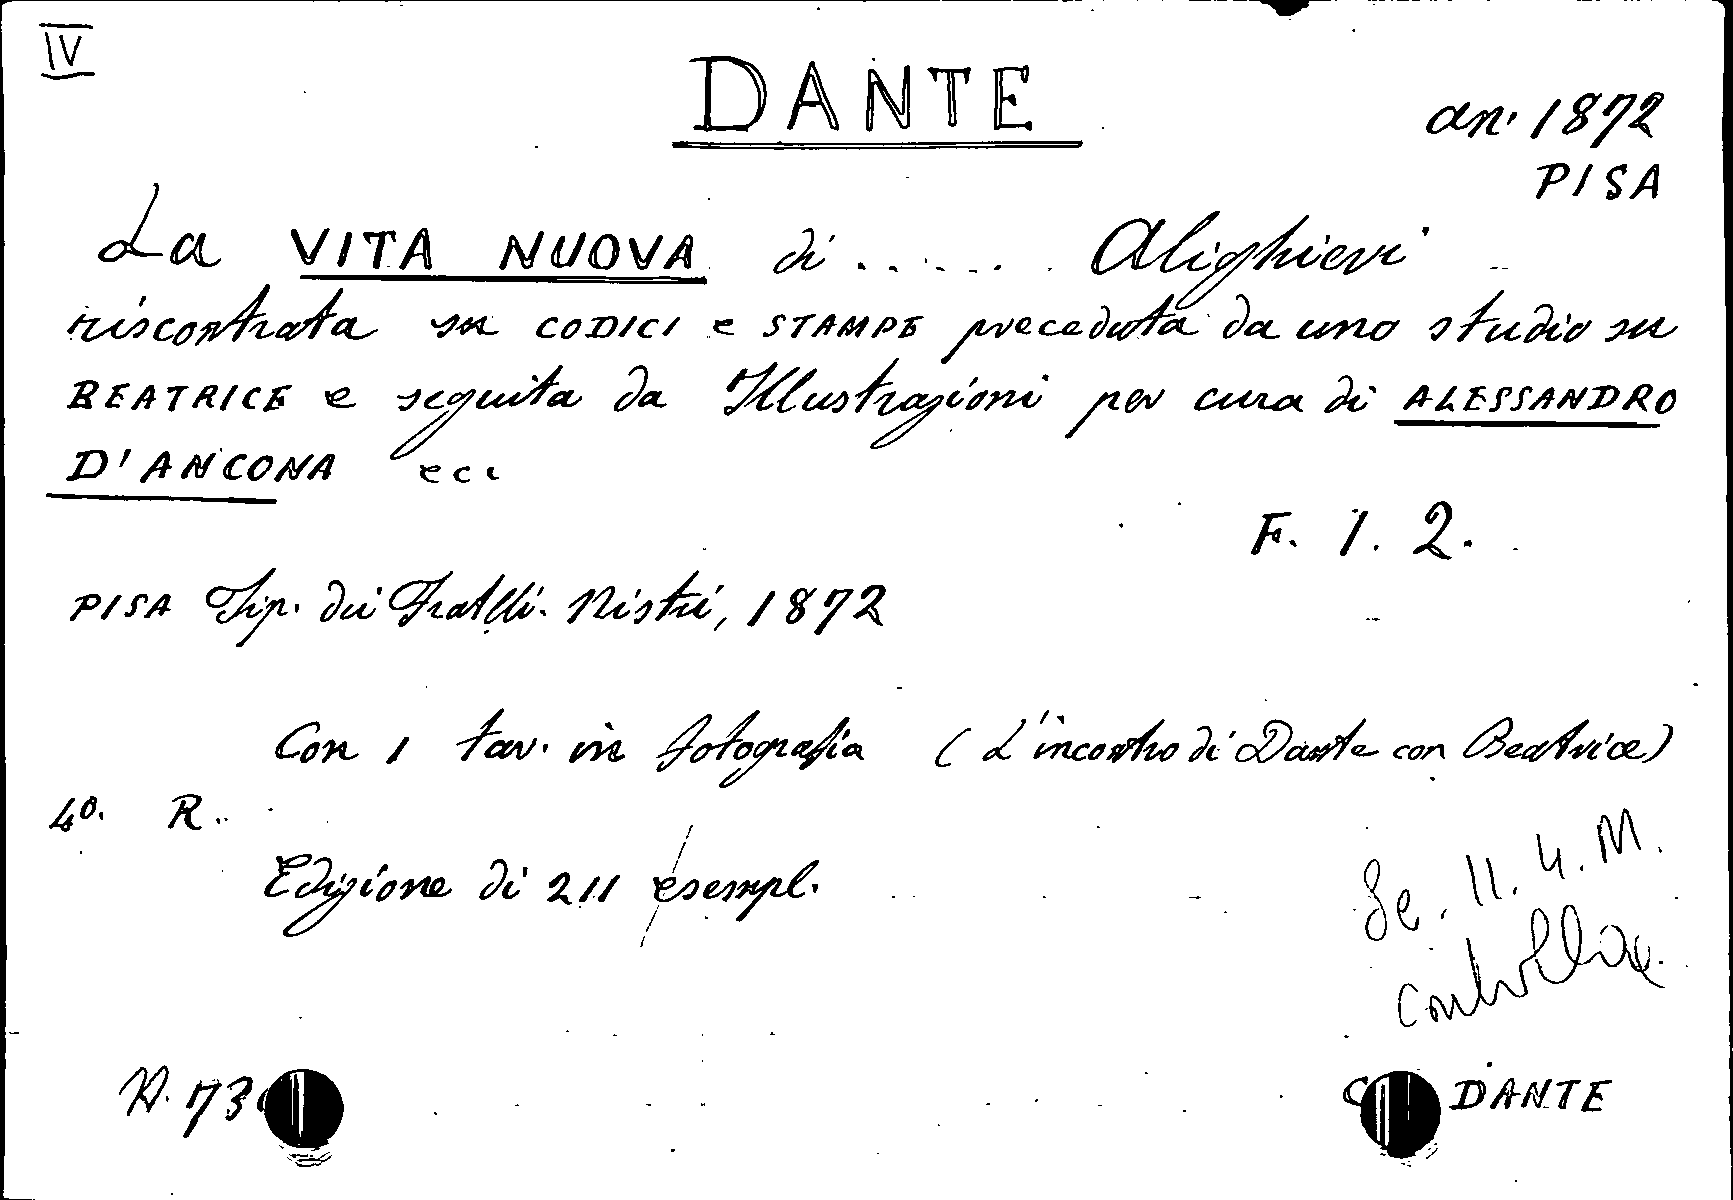 IV
DANTE
an. 1872
PISA
La VITA NUOVA di ...... Alighieri
riscontrata su CODICI e STAMPE preceduta da uno studio su
BEATRICE e seguita da Illustrazioni per cura di ALESSANDRO
D'ANCONA ecc
F. 1. 2.
PISA Tip. dei Fratelli Nistri, 1872
Con 1 tav. in fotografia (L'incontro di Dante con Beatrice)
4º. R.
Edizione di 211 esempl.
Se. 11. 4. M.
N. 73
DANTE